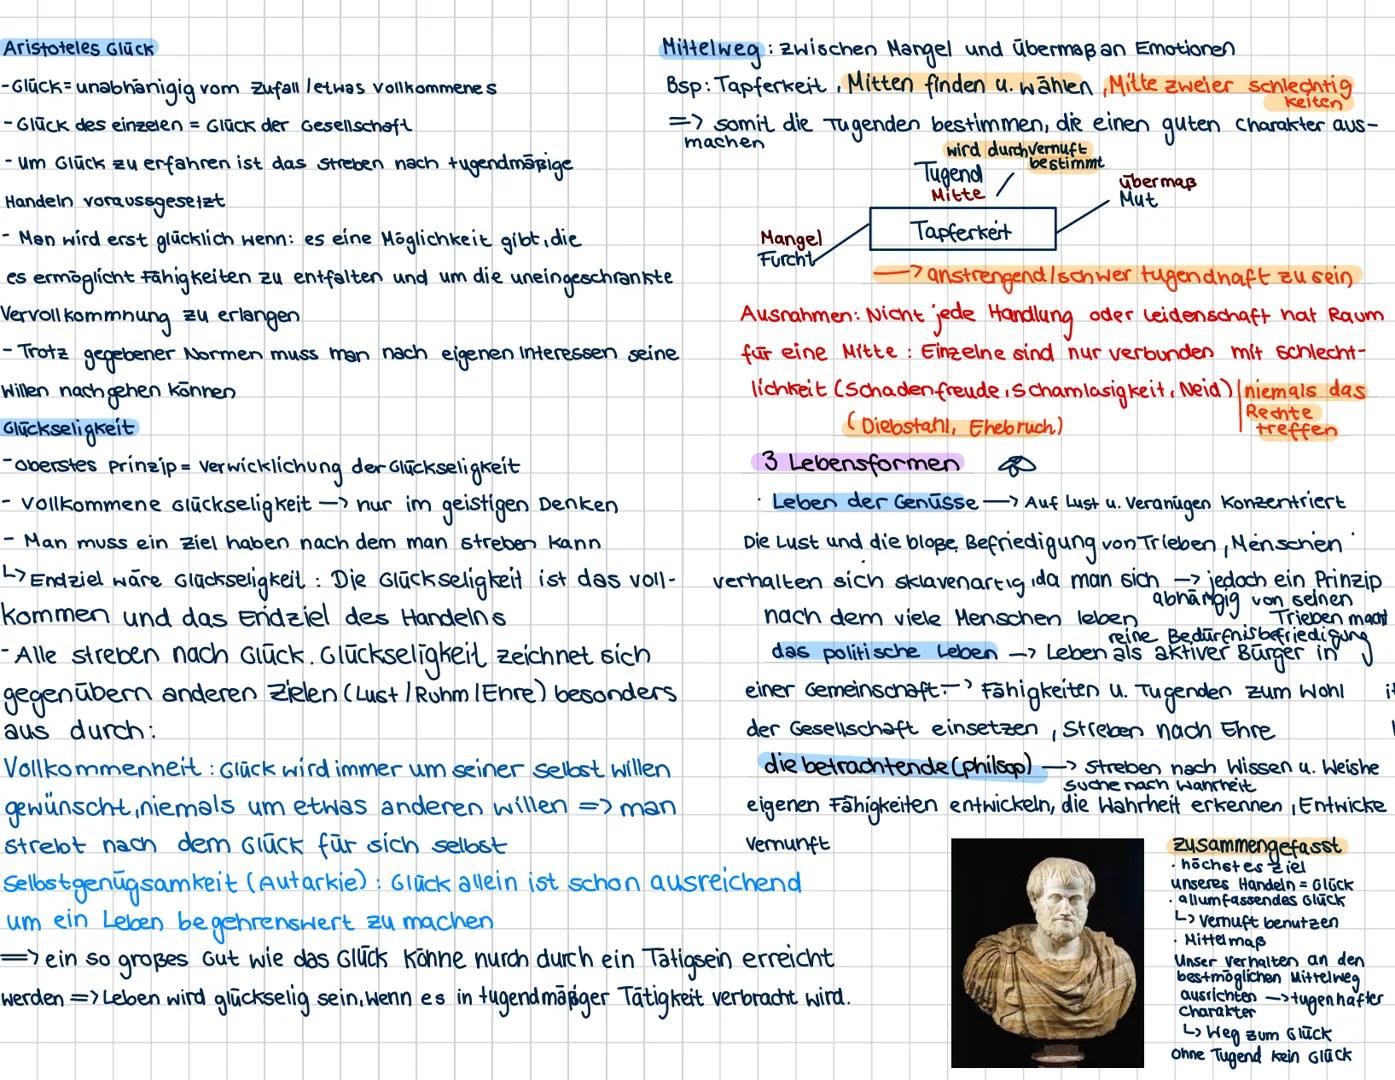 Aristoteles Glück
-Glück= unabhänigig vom Zufall /etwas vollkommenes
- Glück des einzelen = Glück der Gesellschaft
- um Glück zu erfahren ist das streben nach tugendmäßige
Handeln voraussgesetzt
- Man wird erst glücklich wenn: es eine Möglichkeit gibt, die
es ermöglicht Fähigkeiten zu entfalten und um die uneingeschränkte
Vervollkommnung zu erlangen
- Trotz gegebener Normen muss man nach eigenen Interessen seine
Willen nachgehen können
Glückseligkeit
- oberstes Prinzip = Verwicklichung der Glückseligkeit
- Vollkommene Glückseligkeit —> nur im geistigen Denken
- Man muss ein Ziel haben nach dem man streben kann
↳ Endziel wäre Glückseligkeit : Die Glückseligkeit ist das voll-
kommen und das Endziel des Handelns
- Alle streben nach Glück. Glückseligkeit zeichnet sich
gegenübern anderen Zielen (Lust / Ruhm / Ehre) besonders
aus durch:
Vollkommenheit : Glück wird immer um seiner selbst willen
gewünscht, niemals um etwas anderen willen => man
strebt nach dem Glück für sich selbst
Selbstgenügsamkeit (Autarkie) : Glück allein ist schon ausreichend
um ein Leben begehrenswert zu machen
=> ein so großes Gut wie das Glück könne nurch durch ein Tätigsein erreicht
werden => Leben wird glückselig sein, wenn es in tugendmäßiger Tätigkeit verbracht wird.
Mittelweg : zwischen Mangel und übermaß an Emotionen
Bsp: Tapferkeit, Mitten finden u. wählen, Mitte zweier schlechtig
keiten
=> somit die Tugenden bestimmen, die einen guten Charakter aus-
machen
wird durch Vernuft
bestimmt
Tugend
Mitte
übermaß
Mut
Tapferkeit
Mangel
Furcht
—> anstrengend / schwer tugendhaft zu sein
Ausnahmen: Nicht jede Handlung oder Leidenschaft hat Raum
für eine Mitte : Einzelne sind nur verbunden mit schlecht-
lichkeit (Schadenfreude, Schamlasigkeit, Neid) | niemals das
Rechte
treffen
(Diebstahl, Ehebruch)
3 Lebensformen
· Leben der Genüsse —> Auf Lust u. Veranügen Konzentriert
Die Lust und die bloße Befriedigung von Trieben, Menschen
verhalten sich sklavenartig, da man sich —> jedoch ein Prinzip
abhängig von seinen
nach dem viele Menschen leben Trieben macht
reine Bedürfnisbefriedigung
das politische Leben —> Leben als aktiver Bürger in
einer Gemeinschaft -> Fähigkeiten u. Tugenden zum Wohl
der Gesellschaft einsetzen, Streben nach Ehre
die betrachtende (philsop) —> streben nach Wissen u. Weishe
suche nach Wahrheit
eigenen Fähigkeiten entwickeln, die Wahrheit erkennen, Entwicke
Vernunft
zusammengefasst
· höchstes Ziel
unseres Handeln = Glück
· allumfassendes Glück
↳ Vernuft benutzen
· Mittelmaß
Unser Verhalten an den
bestmöglichen Mittelweg
ausrichten —> tugenhafter
Charakter
↳ Weg zum Glück
ohne Tugend kein Glück